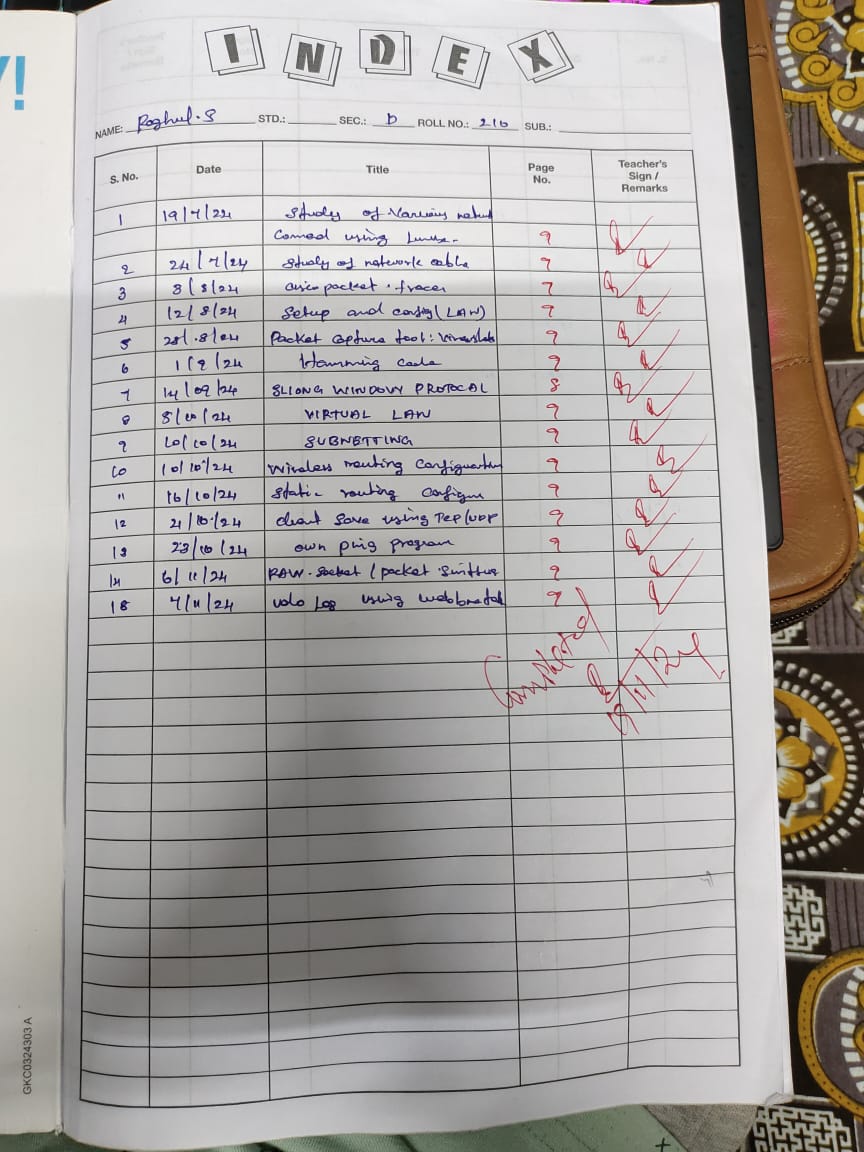 Y!
INDEX
NAME: Roghul.S STD.: SEC.: D ROLL NO.: 210 SUB.:
S. No. Date Title Page No. Teacher's Sign / Remarks
1 19/7/24 Study of Various
using 9
2 24/7/24 Study of network cable 9
3 3/8/24 packet.tracer 7
4 12/8/24 Setup and config(LAN) 9
5 28/.8/24 Packet capture tool: 9
6 1/9/24 Hamming code 9
7 14/09/24 SLIONG WINDOVY PROTOCAL 8
8 8/10/24 VIRTUAL LAN 9
9 10/10/24 SUBNETTING 9
10 10/10/24 Wireless routing 9
11 16/10/24 Static routing 9
12 21/10/24 using TCP/UDP 9
13 23/10/24 own ping program 9
14 6/11/24 RAW.Socket / packet 9
15 7/11/24 log using 9
Completed
9/11/24
GKC0324303 A